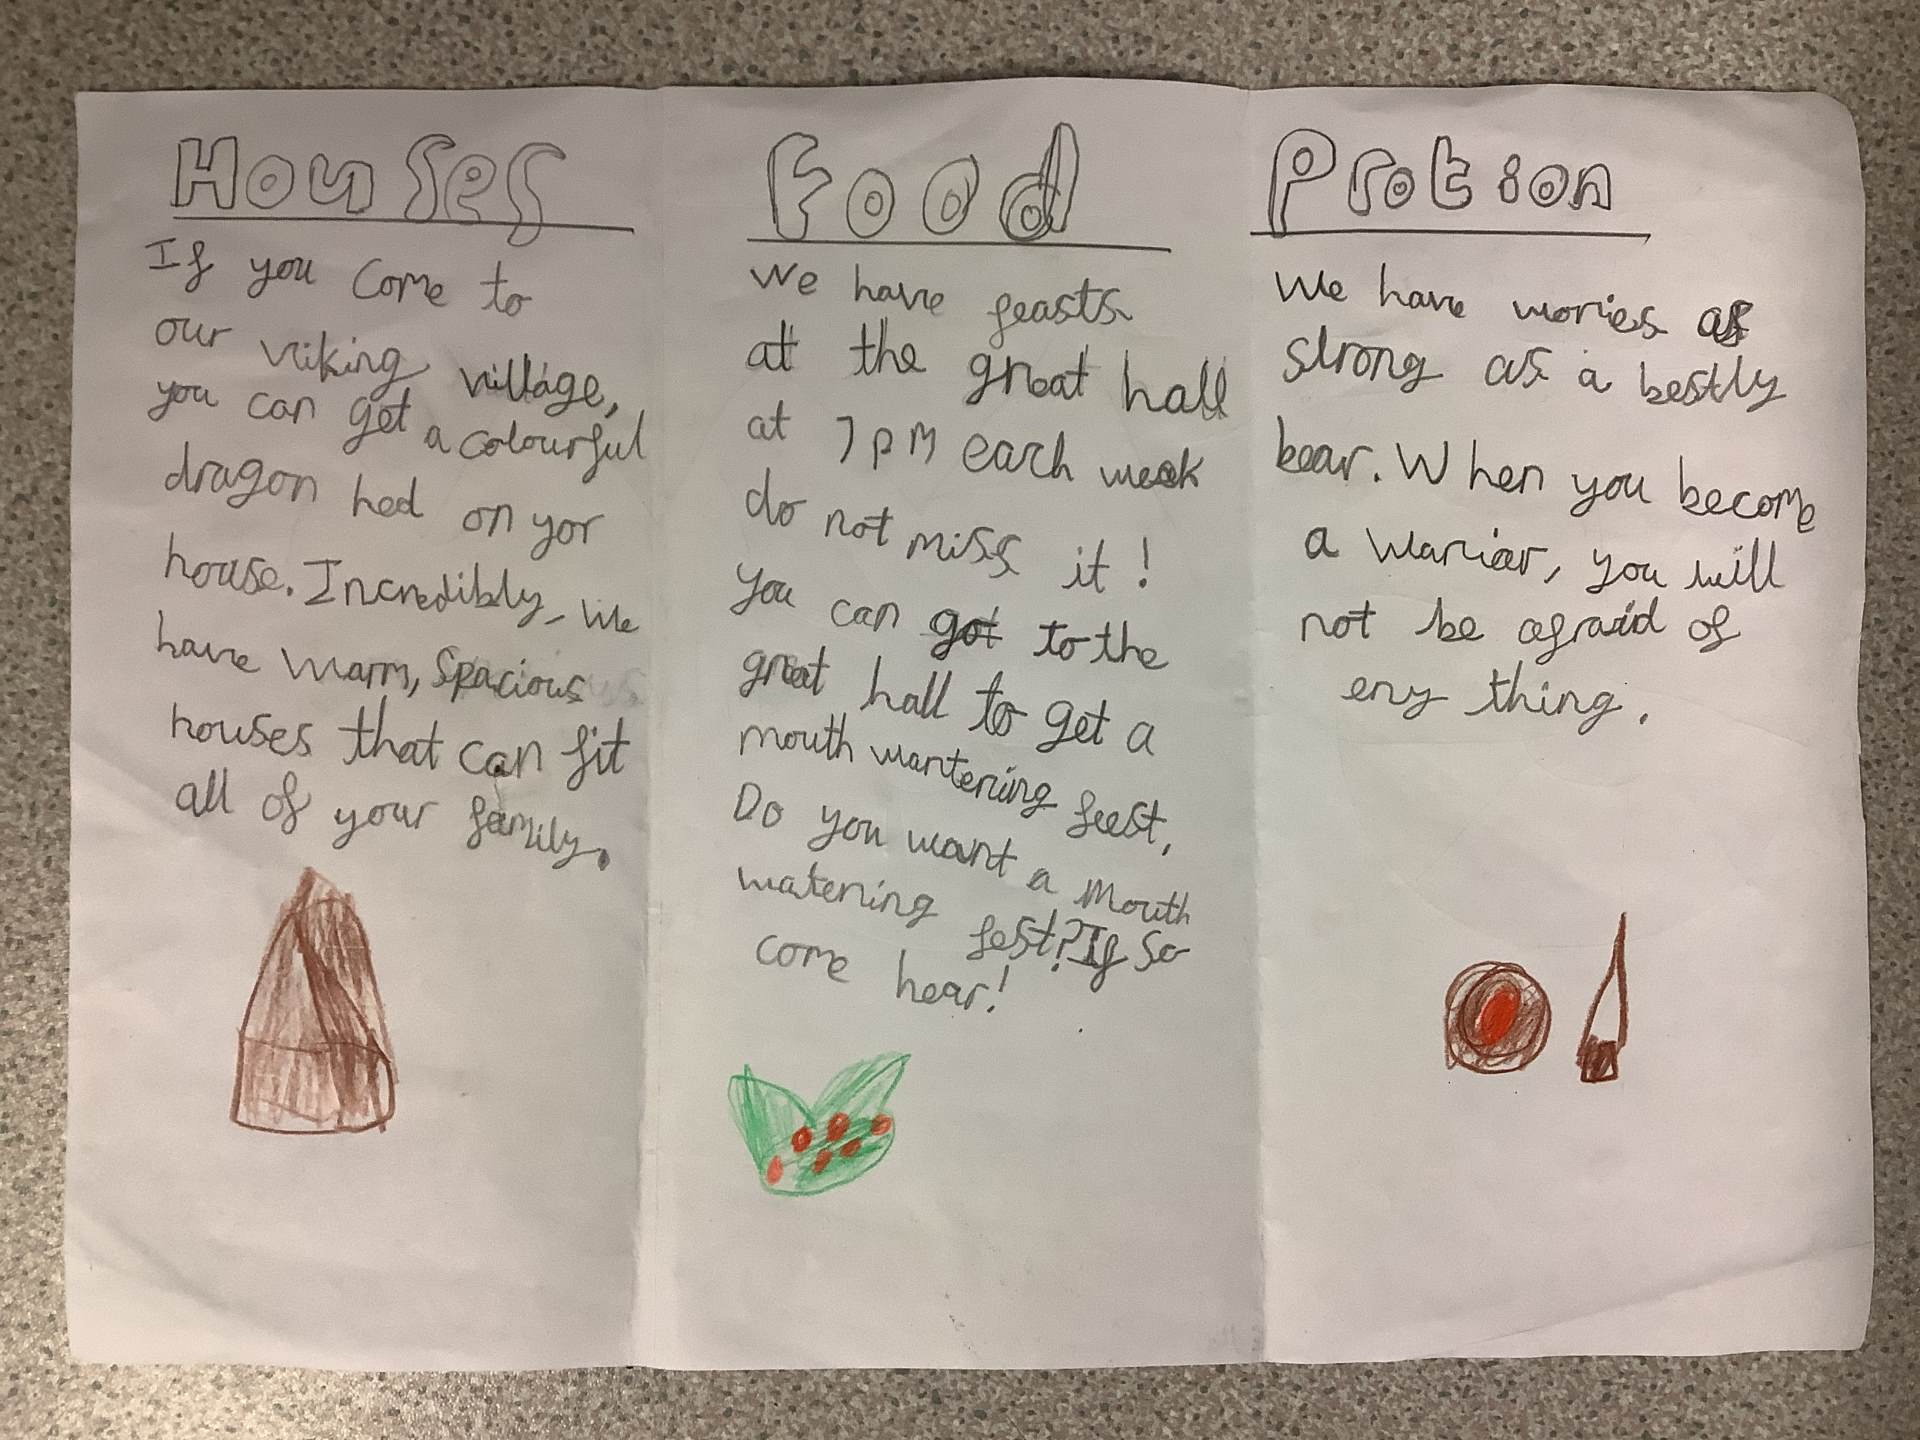 Houses
If you come to
our viking village,
you can get a colourful
dragon hed on yor
house. Incredibly, we
have warm, spacious
houses that can fit
all of your family.
Food
we have feasts
at the great hall
at 7pm each week
do not miss it!
you can got to the
great hall to get a
mouth wantering feest.
Do you want a mouth
watering fest? If so
come hear!
Protion
we have worries as
strong as a bestly
bear. When you become
a warrier, you will
not be afraid of
eny thing.